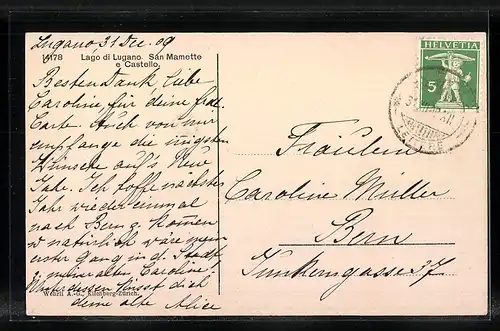 Lugano, 31 Dec. 09
178 Lago di Lugano. San Mamette
e Castello.
Besten Dank liebe
Caroline für deine
Carte. Auch von mir
empfange die innigsten
Wünsche auf's Neue
Jahr. Ich hoffe nächstes
Jahr wieder einmal
nach Bern z. kommen
natürlich wäre mein
erster Gang in d. Stadt
z. meiner alten Caroline.
Unterdessen küsst dich
deine alte Alice
Wehrli A.-G., Kilchberg-Zürich.
HELVETIA
5
Fräulein
Caroline Müller
Bern
Junkerngasse 37